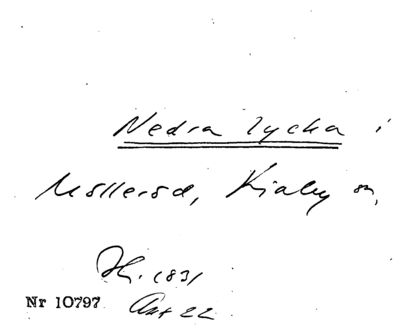 Nedra lycka i
Mölleröd, Kiaby sn,
H. 1831
Nr 10797 Akt 22